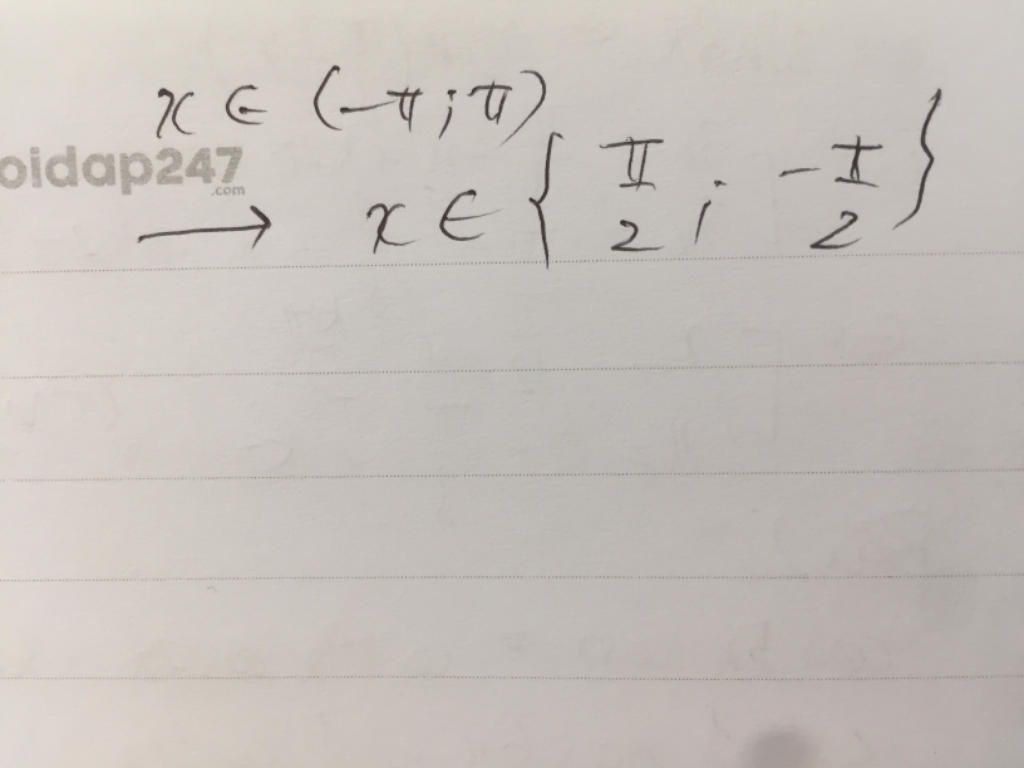 x ∈ (-π ; π)
oidap247
.com
→ x ∈ { π/2 ; -π/2 }